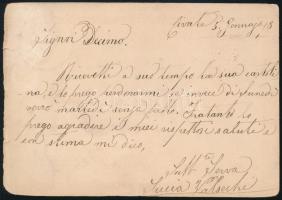 Civate 3, Gennajo 18
Signor Decimo.
Ricevetti a suo tempo la sua cartoli
na, e la prego perdonarmi se invece di lunedì
verrò martedì senza fallo. Frattanto la
prego aggradire i miei rispettosi saluti e
con stima mi dico,
Serva
Lucia Valsecchi